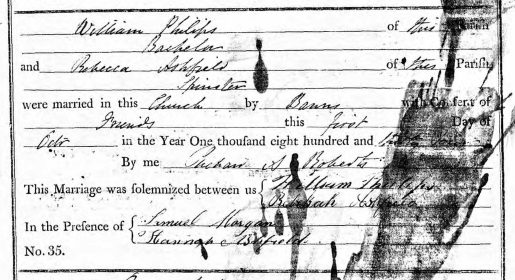 William Philips of this Parish
Bachelor
and Rebecca Ashfield of this Parish
Spinster
were married in this Church by Banns with Consent of
Friends this first Day of
Octr in the Year One thousand eight hundred and
By me Roberts
This Marriage was solemnized between us { William Philips
Rebekah Ashfield
In the Presence of { Samuel Morgan
Hannah Ashfield
No. 35.